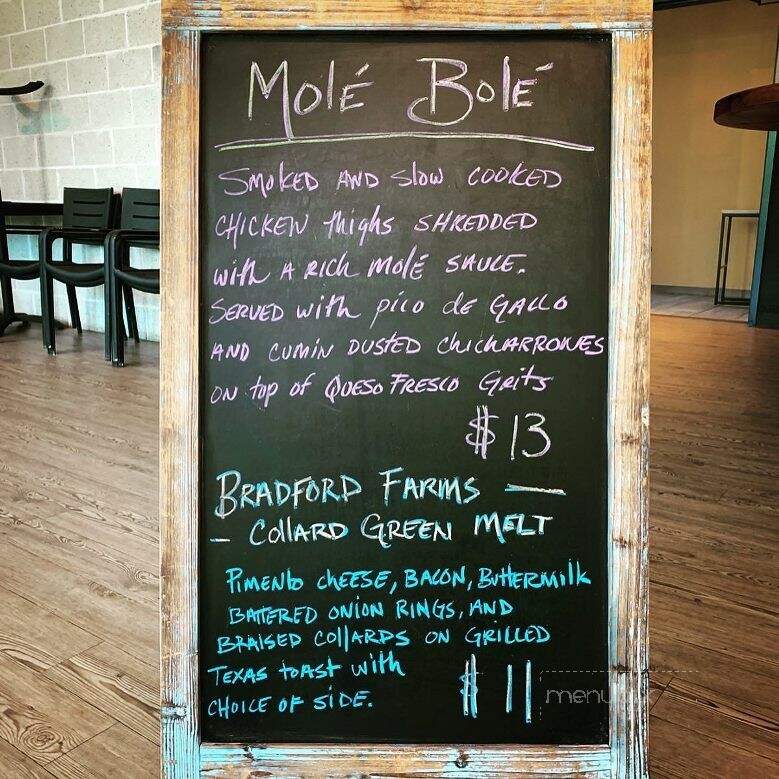 Molé Bolé
SMOKED AND Slow COOKED
CHICKEN thighs SHREDDED
with A RICH Molé SAUCE.
SERVED with pico de GALLO
AND CUMIN DUSTED ChiCHARRONES
ON top of QUESO FRESCO Grits
$13
BRADFORD FARMS —
- COLLARD GREEN MELT
PIMENto CHEESE, BACON, BUttERMilk
BATTERED ONION RINGS, AND
BRAISED COllARDS ON GRILLED
TEXAS toAst with
CHOICE OF SIDE.
$11